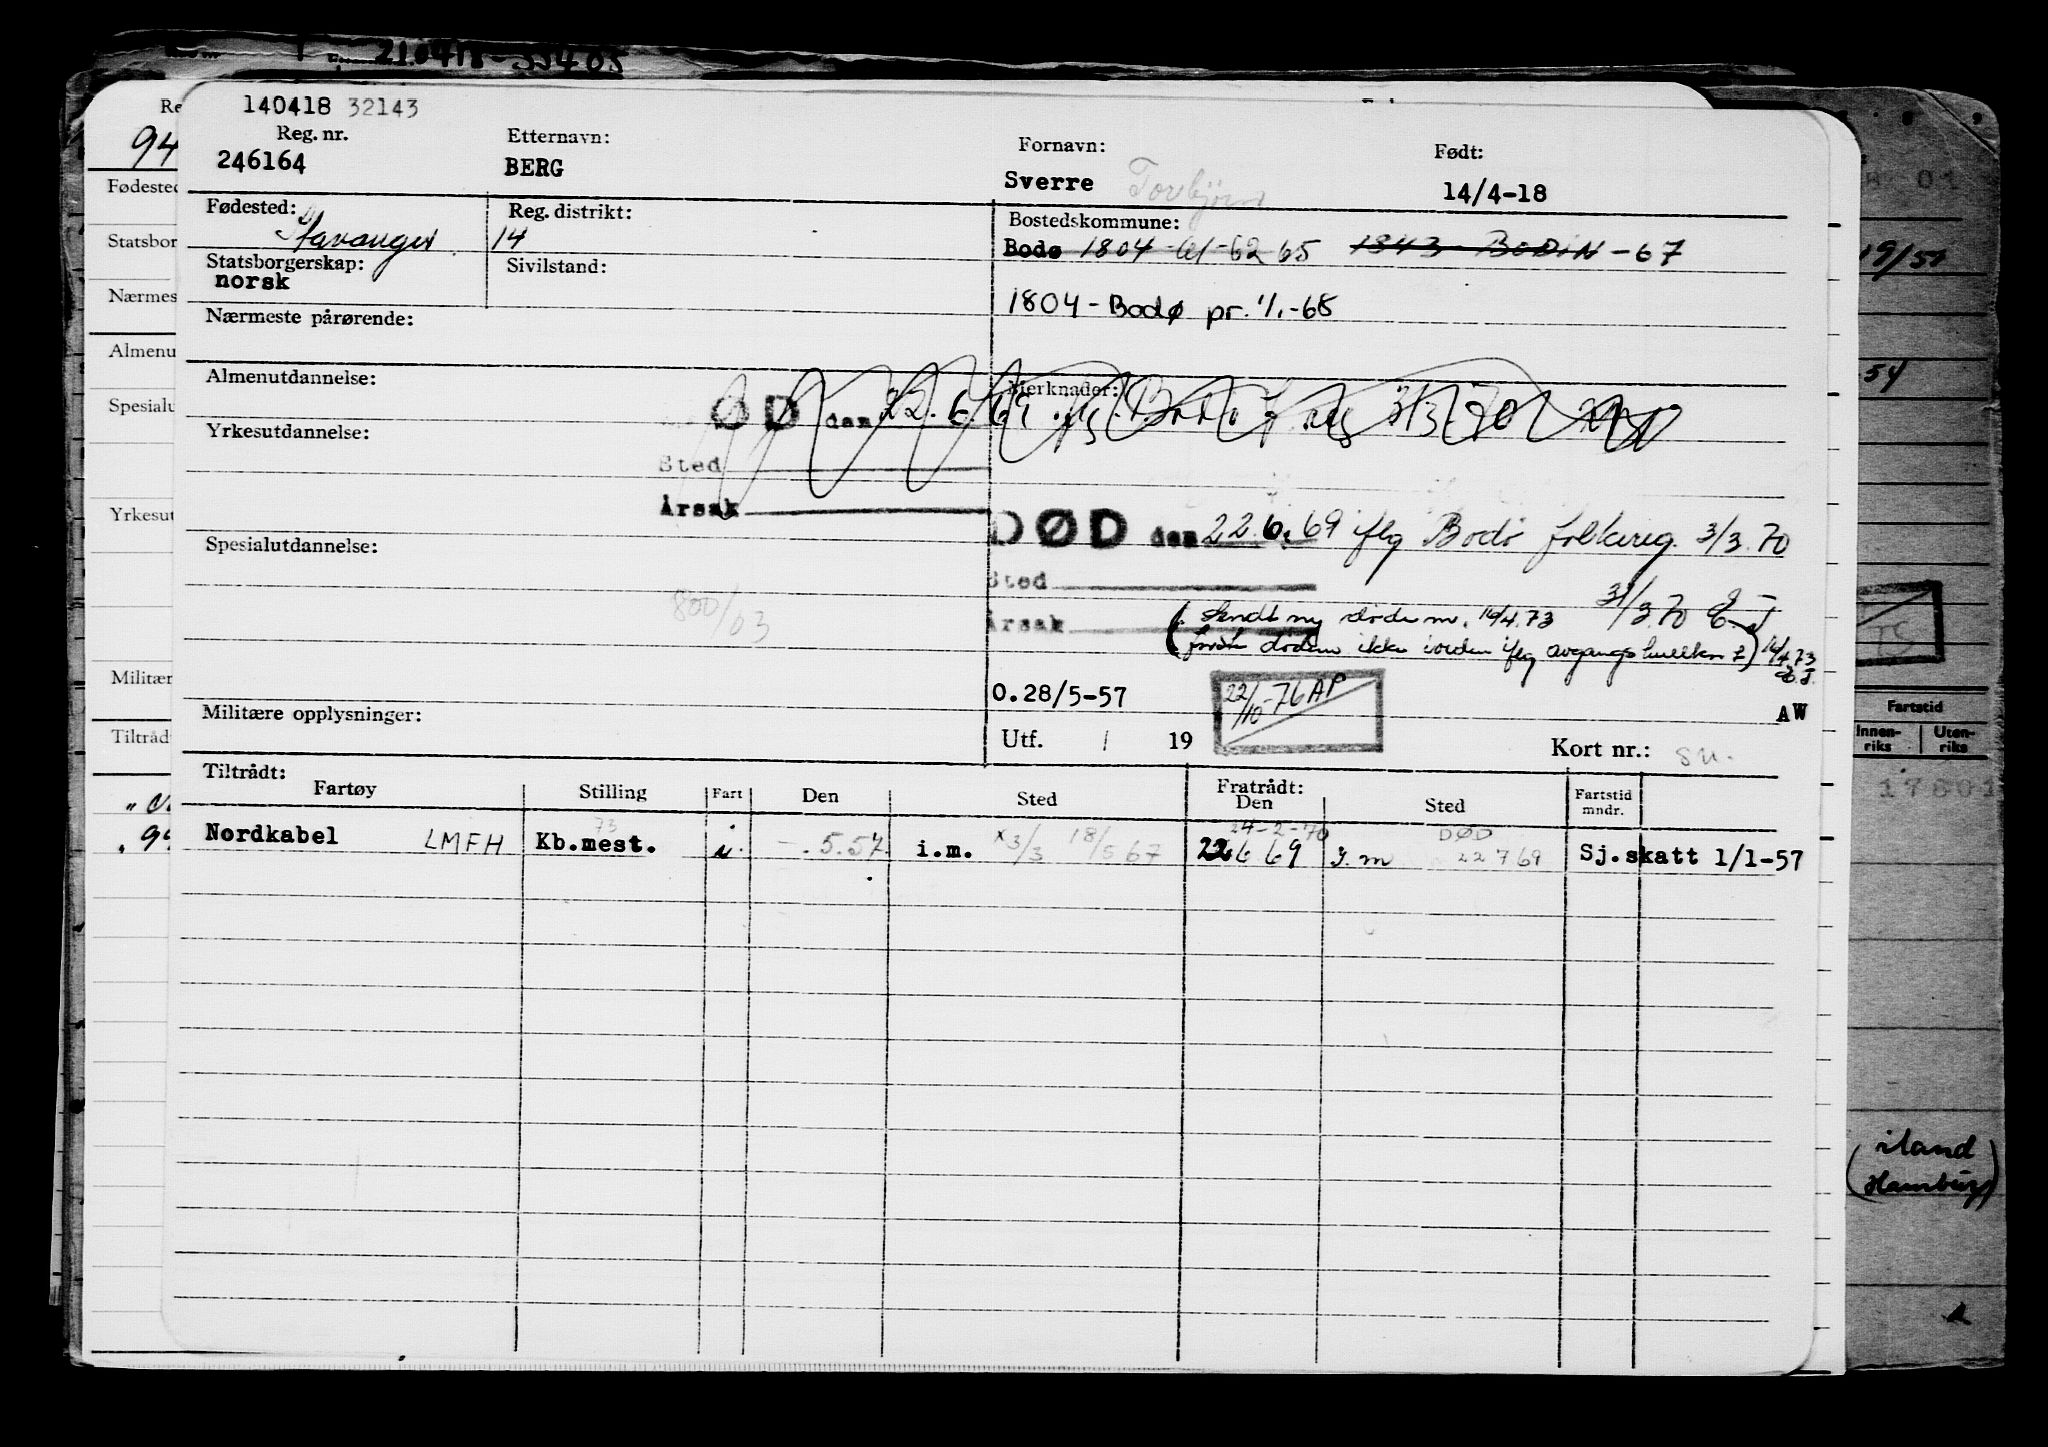 210418-33405
140418 32143
Reg. nr. Etternavn: Fornavn: Født:
246164 BERG Sverre Torbjørn 14/4-18
Fødested: Reg. distrikt: Bostedskommune:
Stavanger 14 Bodø 1804-61-62 65 1843 BODIN -67
Statsborgerskap: Sivilstand:
norsk
1804 - Bodø pr. 1/1-68
Nærmeste pårørende:
Almenutdannelse: Merknader:
ØD den 22.6.69
Yrkesutdannelse:
Sted
Årsak
DØD den 22.6.69 iflg Bodø folkereg. 3/3.70
Spesialutdannelse:
Sted
800/63
31/3.70
Årsak
(Sendt ny dødsm. 16/4.73
første ikke iflg 16/4.73
0.28/5-57
22/10-76 AP
Militære opplysninger: AW
Utf. / 19 Kort nr.: su.
Tiltrådt: Fratrådt:
Fartøy Stilling Fart Den Sted Den Sted Fartstid mndr.
73 24-2-70 DØD
Nordkabel LMFH Kb.mest. i - .5.57 i.m. x3/3 18/5 67 22 6 69 I.m 22 7 69 Sj.skatt 1/1-57
94
Fødested
Statsbor
Nærmes
Almenu
Spesialu
Yrkesut
Militær
Tiltråd
99
19/51
54
TS
Fartstid
Innen-riks Uten-riks
17801
(iland
Hamburg)